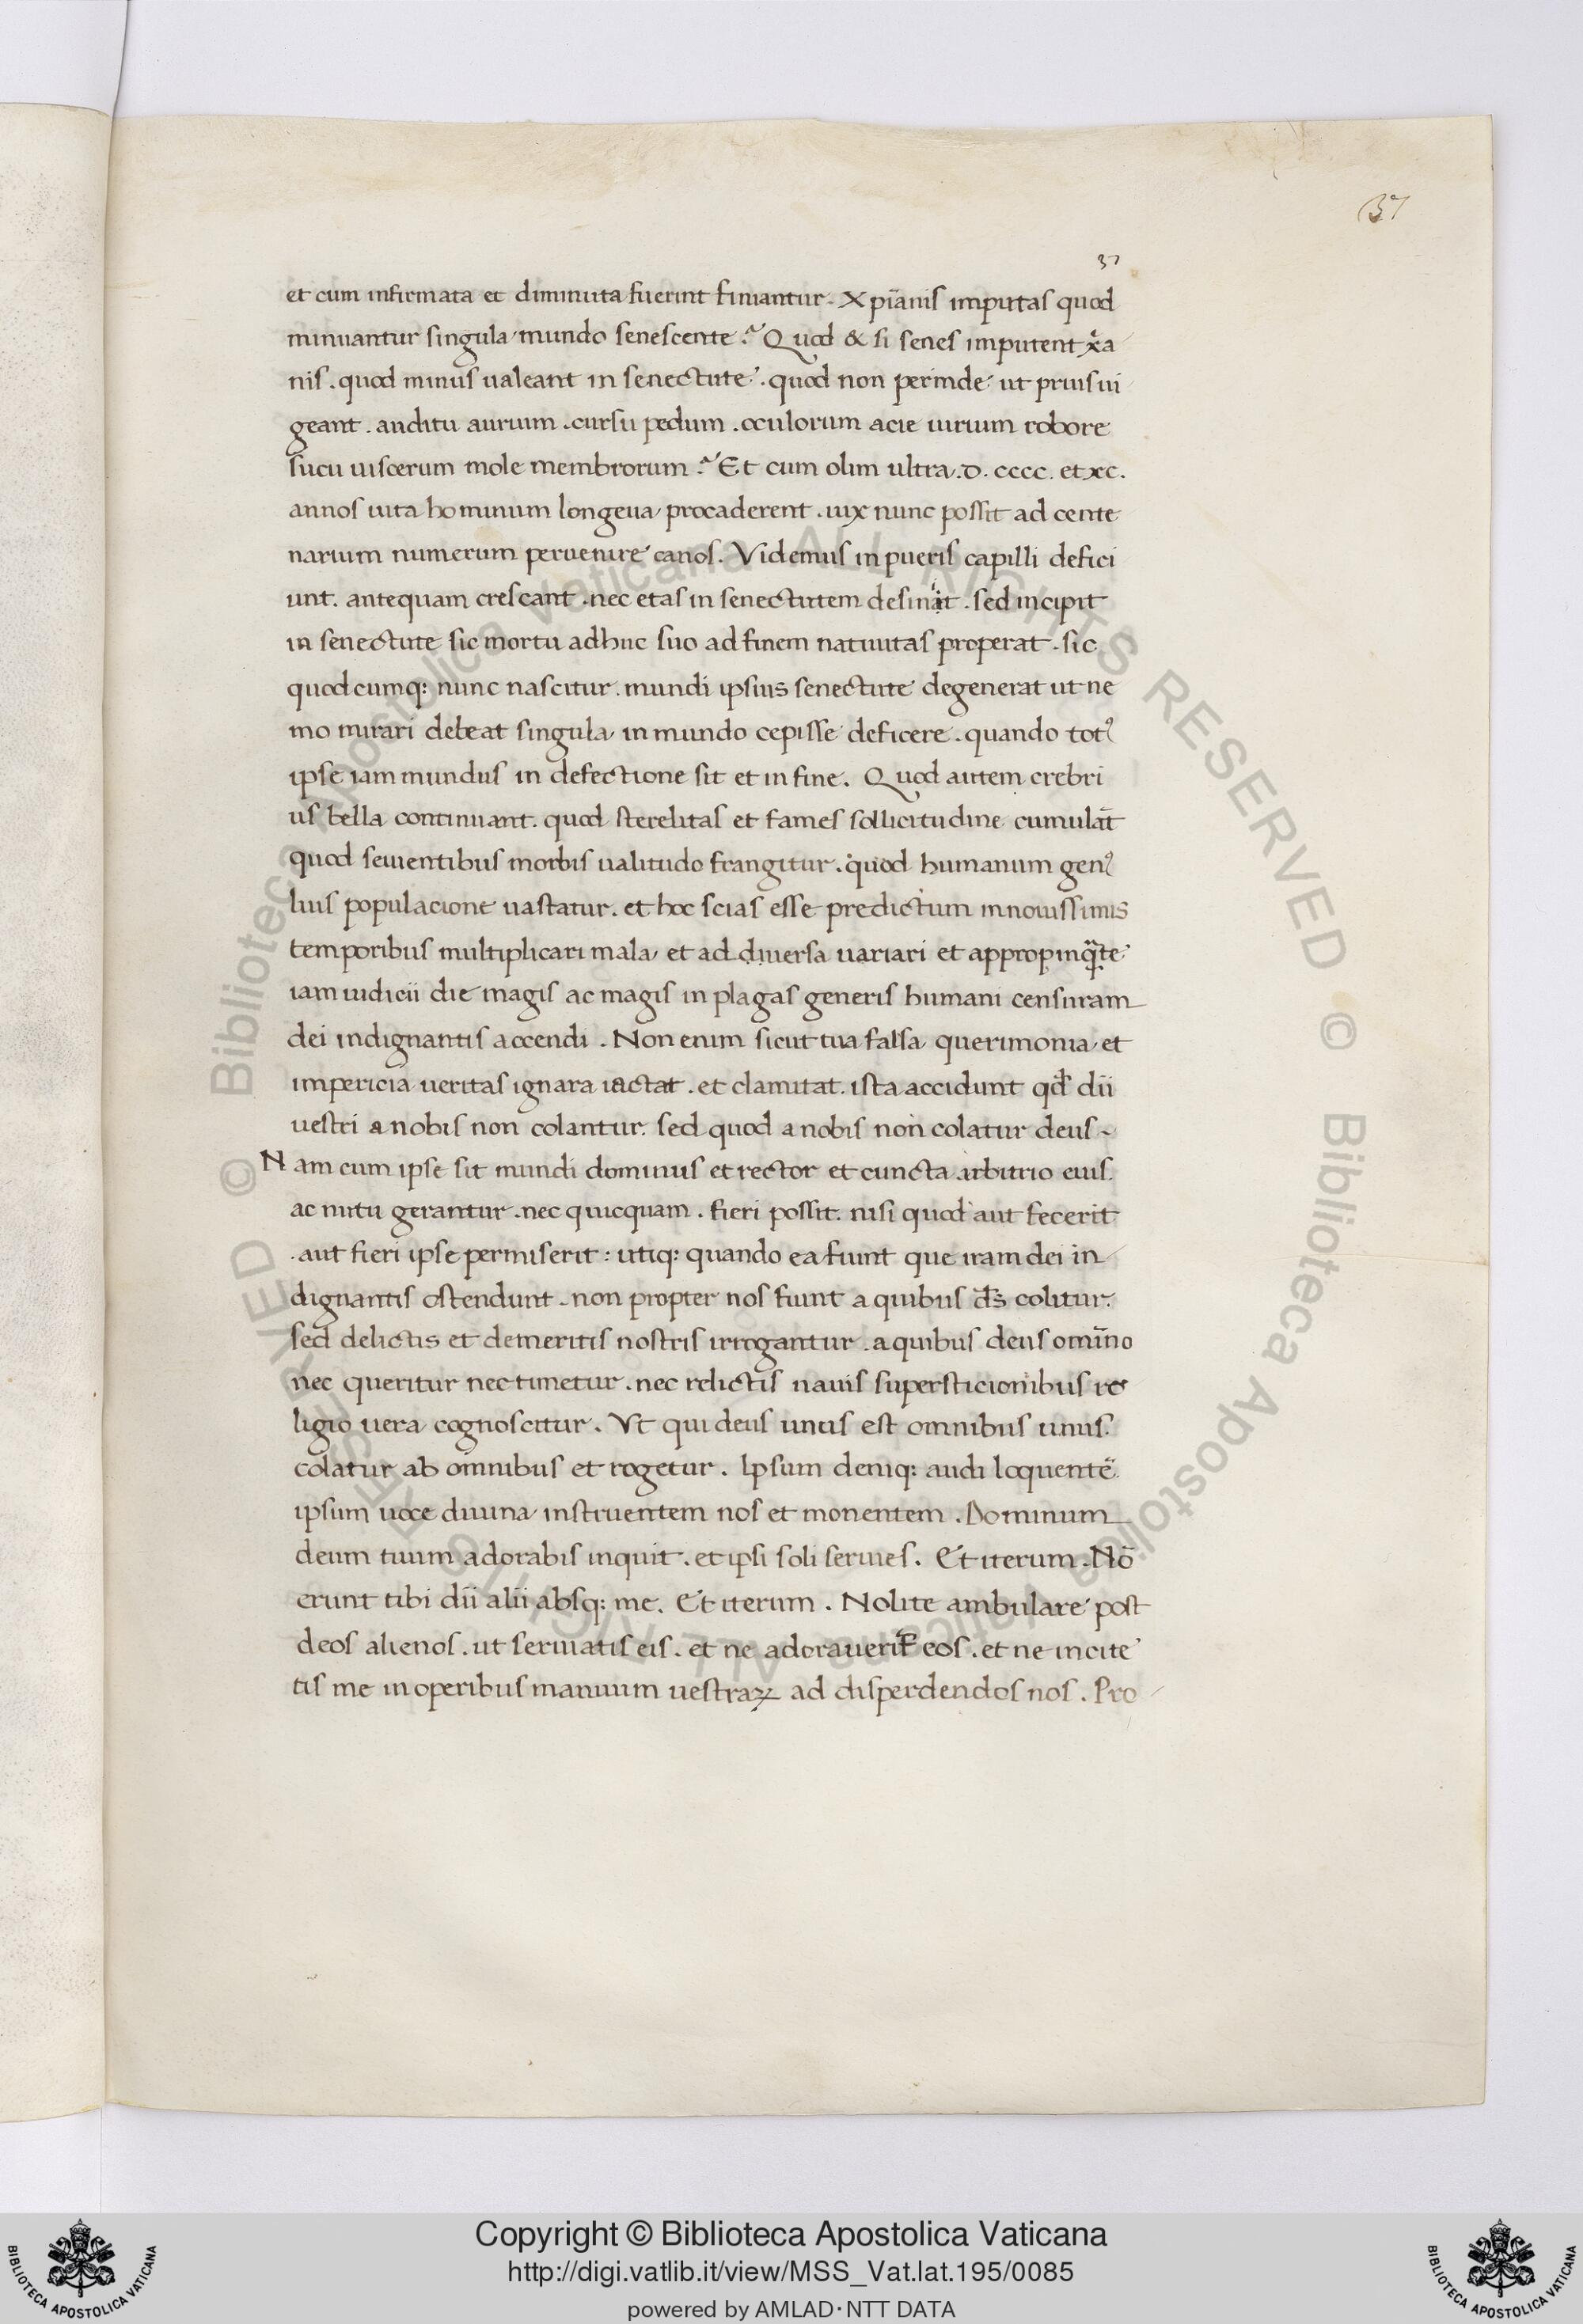 37
37
et cum infirmata et diminuta fuerint finiantur. Xpianis imputas quod
minuantur singula mundo senescente? Quod & si senes imputent xͣa
nis. quod minus ualeant in senectute. quod non perinde ut prius ui
geant. auditu aurium. cursu pedum. oculorum acie uirium robore
sucu uiscerum mole membrorum? Et cum olim ultra .D. cccc. et xc.
annos uita hominum longeua procaderent. uix nunc possit ad cente
narium numerum peruenire canos. Videmus in pueris capilli defici
unt. antequam crescant. nec etas in senectutem desinait. sed incipit
in senectute sic mortu adhuc suo ad finem natiuitas properat. sic
quodcumq: nunc nascitur. mundi ipsius senectute degenerat ut ne
mo mirari debeat singula in mundo cepisse deficere. quando totꝰ
ipse iam mundus in defectione sit et in fine. Quod autem crebri
us bella continuant. quod sterelitas et fames sollicitudine cumulāt
quod seuientibus morbis ualitudo frangitur. quod humanum genꝰ
luis populacione uastatur. et hoc scias esse predictum in nouissimis
temporibus multiplicari mala, et ad diuersa uariari et appropinqͣte
iam iudicii die magis ac magis in plagas generis humani censuram
dei indignantis accendi. Non enim sicut tua falsa querimonia et
impericia ueritas ignara iactat. et clamitat. ista accidunt qd̄ dii
uestri a nobis non colantur. sed quod a nobis non colatur deus
Nam cum ipse sit mundi dominus et rector et cuncta arbitrio eius.
ac nutu gerantur. nec quicquam. fieri possit. nisi quod aut fecerit
.aut fieri ipse permiserit: utiq: quando ea fiunt que iram dei in
dignantis ostendunt. non propter nos fiunt a quibus ds̄ colitur.
sed delictis et demeritis nostris irrogantur. a quibus deus omīno
nec queritur nec timetur. nec relictis nauis supersticionibus re
ligio uera cognoscitur. Vt qui deus unus est omnibus unus.
colatur ab omnibus et rogetur. Ipsum deniq: audi loquentē
ipsum uoce diuina instruentem nos et monentem. Dominum
deum tuum adorabis inquit. et ipsi soli seruies. Et iterum. Nō
erunt tibi dii alii absq: me. Et iterum. Nolite ambulare post
deos alienos. ut seruiatis eis. et ne adorauerit̄ eos. et ne incite
tis me in operibus manuum uestraꝝ ad disperdendos nos. Pro
© Biblioteca Apostolica Vaticana ALL RIGHTS RESERVED © Biblioteca Apostolica Vaticana ALL RIGHTS RESERVED
BIBLIOTECA APOSTOLICA VATICANA
Copyright © Biblioteca Apostolica Vaticana
http://digi.vatlib.it/view/MSS_Vat.lat.195/0085
powered by AMLAD·NTT DATA
BIBLIOTECA APOSTOLICA VATICANA